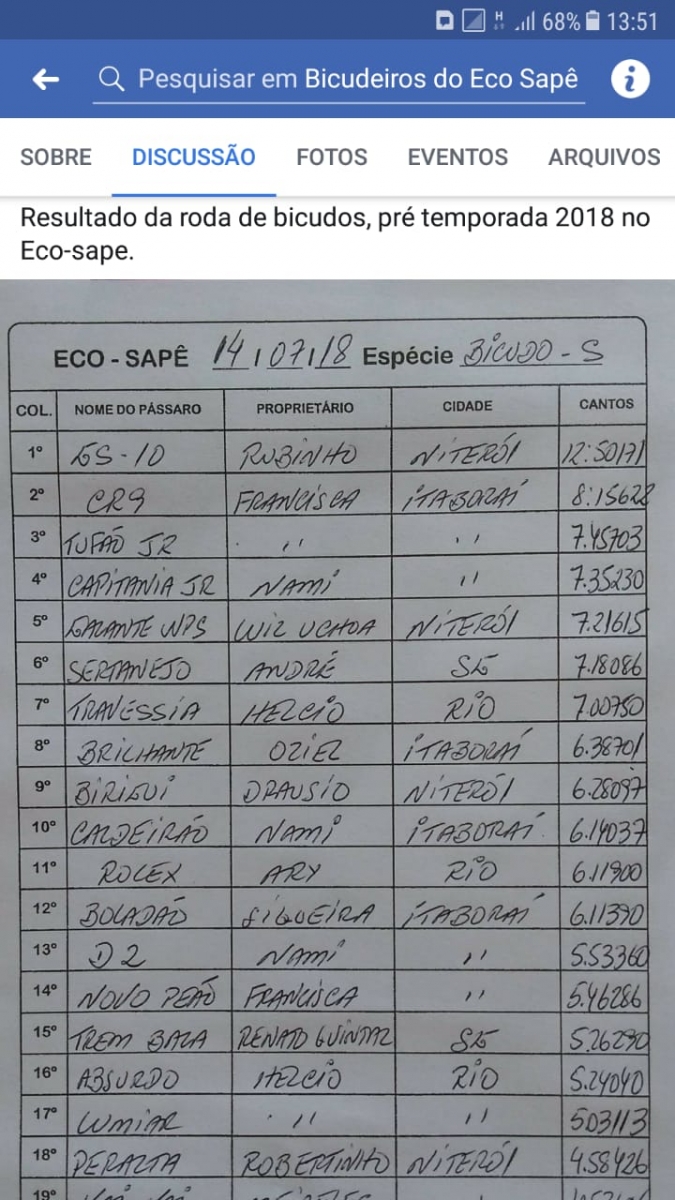 H 68% 13:51
Pesquisar em Bicudeiros do Eco Sapê
SOBRE DISCUSSÃO FOTOS EVENTOS ARQUIVOS
Resultado da roda de bicudos, pré temporada 2018 no
Eco-sape.
ECO - SAPÊ 14/07/18 Espécie BICUDO - S
COL. NOME DO PÁSSARO PROPRIETÁRIO CIDADE CANTOS
1º GS-10 RUBINHO NITERÓI 12:50171
2º CR9 FRANCISCA ITABORAÍ 8:15628
3º TUFÃO JR '' '' 7.45703
4º CAPITANIA JR NAMI '' 7.35230
5º GALANTE WPS LUIZ UCHOA NITERÓI 7.21615
6º SERTANEJO ANDRÉ SG 7.18086
7º TRAVESSIA HELCIO RIO 7.00750
8º BRILHANTE OZIEL ITABORAÍ 6.38701
9º BIRIGUI DRAUSIO NITERÓI 6.28097
10º CALDEIRÃO NAMI ITABORAÍ 6.14037
11º ROLEX ARY RIO 6.11900
12º BOLADÃO SIQUEIRA ITABORAÍ 6.11390
13º D2 NAMI '' 5.53360
14º NOVO PEÃO FRANCISCA '' 5.46286
15º TREM BALA RENATO QUINTAL SG 5.26290
16º ABSURDO HELCIO RIO 5.24040
17º LUMIAR '' '' 503113
18º PERALTA ROBERTINHO NITERÓI 4.58426
19º